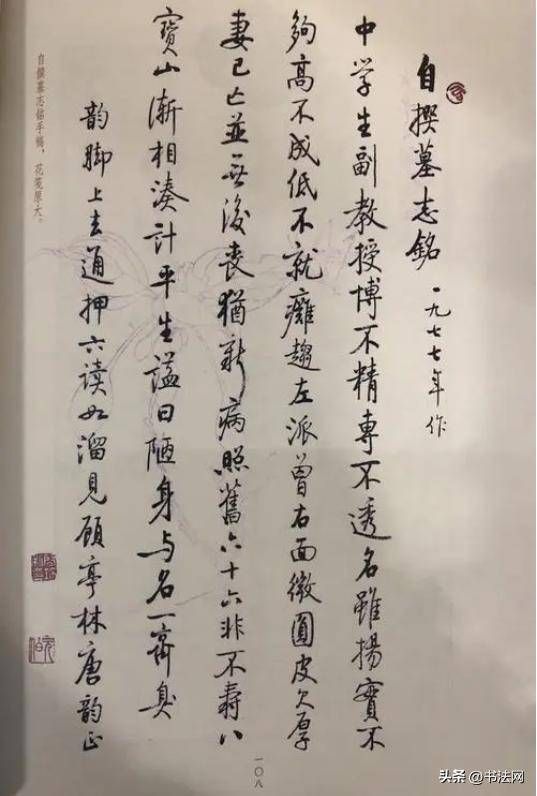 自撰墓志銘 一九七七年作
中学生副教授博不精專不透名雖揚實不
夠高不成低不就癱趨左派曾右面微圓皮欠厚
妻已亡並無後喪猶新病照舊六十六非不壽八
寶山漸相湊計平生謚曰陋身与名一齊臭
韵脚上去通押六读如溜見顾亭林唐韵正
自撰墓志銘手稿，花箋原大。
一〇八
头条 @书法网